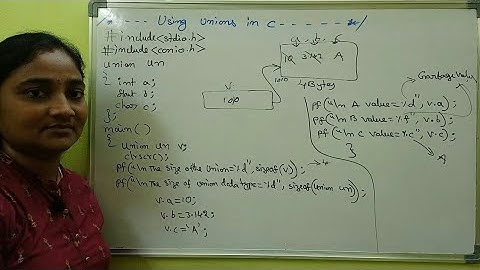 /*---- Using Unions in C -----*/
#include<stdio.h>
#include<conio.h>
union un
{ int a;
float b;
char c;
};
main()
{ union un v;
clrscr();
pf("\n The size of the union=%d", sizeof(v)); → 4
pf("\n The size of union data type=%d", sizeof(union un));
v.a=10;
v.b=3.142;
v.c='A';
a b c
10 3.142 A
1010
4Bytes
v
1010
Garbage value
pf("\n A value=%d", v.a);
pf("\n B value=%f", v.b);
pf("\n C value=%c", v.c);
A
}